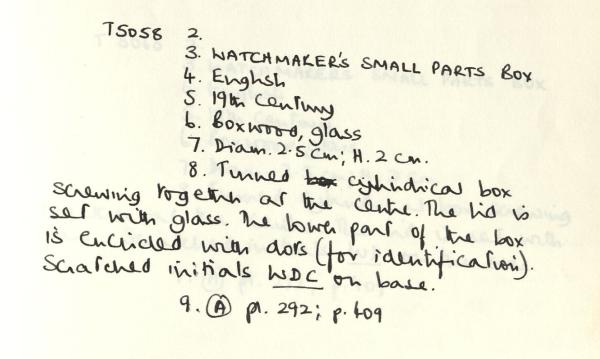 T5058 2.
3. WATCHMAKER'S SMALL PARTS BOX
4. English
5. 19th Century
6. Boxwood, glass
7. Diam. 2.5 cm; H. 2 cm.
8. Turned box cylindrical box
screwing together at the centre. The lid is
set with glass. The lower part of the box
is encircled with dots (for identification).
Scratched initials WDC on base.
9. (A) pl. 292; p. 409